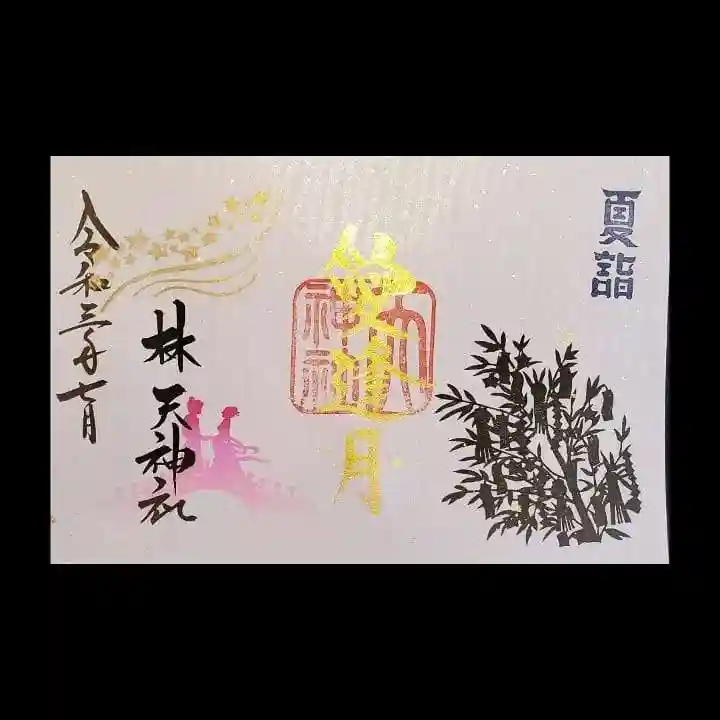 夏詣
愛逢月
林天神社
令和三年七月